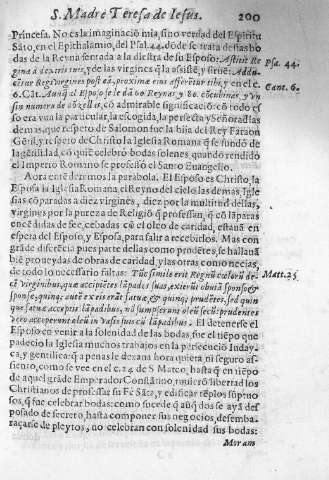 S. Madre Teresa de Iesus. 200
Princesa. No es la imaginaciõ mia, sino verdad del Espiritu
Sãto, en el Epithalamio, del Psal. 44. dõde se trata destas bo-
das de la Reyna sentada a la diestra de su Esposo: Astitit Re Psa. 44.
gina à dextris tuis, y de las virgines q̃ la assistẽ, y siruẽ: Addu-
cẽtur Regi virgines post eã, proximæ eius afferẽtur tibi, y en el c. Cant. 6.
6. Cãt. Aunq̃ al Esposo se le dã 60 Reynas, y 80. cõcubinas, y vn
sin numero de dõzellas, cõ admirable significaciõ cõ todo es
so era vna la particular, la escogida, la perfecta y Señora d las
demas, que respeto de Salomon fue la hija del Rey Faraon
Gẽtil, y respeto de Christo la Iglesia Romana q̃ se fundó de
la gẽtilidad, cõ quiẽ celebrò bodas solenes, quando rendido
el Imperio Romano se professò el Santo Euangelio.
Aora entẽdremos la parabola. El Esposo es Christo, la
Esposa la Iglesia Romana, el Reyno del cielo las demas Igle
sias cõparadas a diez virgines, diez por la multitud dellas,
virgines por la pureza de Religiõ q̃ professan, q̃ cõ lãparas
encẽdidas de fee, cebadas cõ el oleo de caridad, estanã en
espera del Esposo, y Esposa, para salir a recebirlos. Mas con
grãde difer̃ecia pues parte dellas como prudẽtes, se hallanã
biẽ proueydas de obras de caridad, y las otras como necias,
de todo lo necessario faltas: Tũc simile erit Regnũ cælorũ de- Matt. 25
cẽ virginibus, quæ accipiẽtes lãpades suas, exierũt obuiã sponso &
sponsæ, quinq; autẽ ex eis erãt fatuæ, & quinq; prudẽtes, sed quin
que fatuæ acceptis lãpadibus, nõ sumpserunt oleũ secũ: prudentes
vero acceperunt oleũ in vasis suis cũ lãpadibus. El detenerse el
Esposo en venir a la solenidad de las bodas, fue el tiẽpo que
padecio la Iglesia muchos trabajos en la persecuciõ Iuday-
ca, y gentilica: q̃ a penas le dexanã hora quieta, ni seguro as-
siento, como se vee en el c. 24. de S. Mateo, hasta q̃ en tiẽpo
de aquel grãde Emperador Constãtino, tuuierõ libertad los
Christianos de professar su Fè Sãta, y edificar tẽplos sũptuo
sos, q̃ fue celebrar bodas: como sucede q̃ aũq̃ dos se ayã des
posado de secreto, hasta componer sus negocios, desemba-
raçarse de pleytos, no celebran con solenidad sus bodas:
Moram